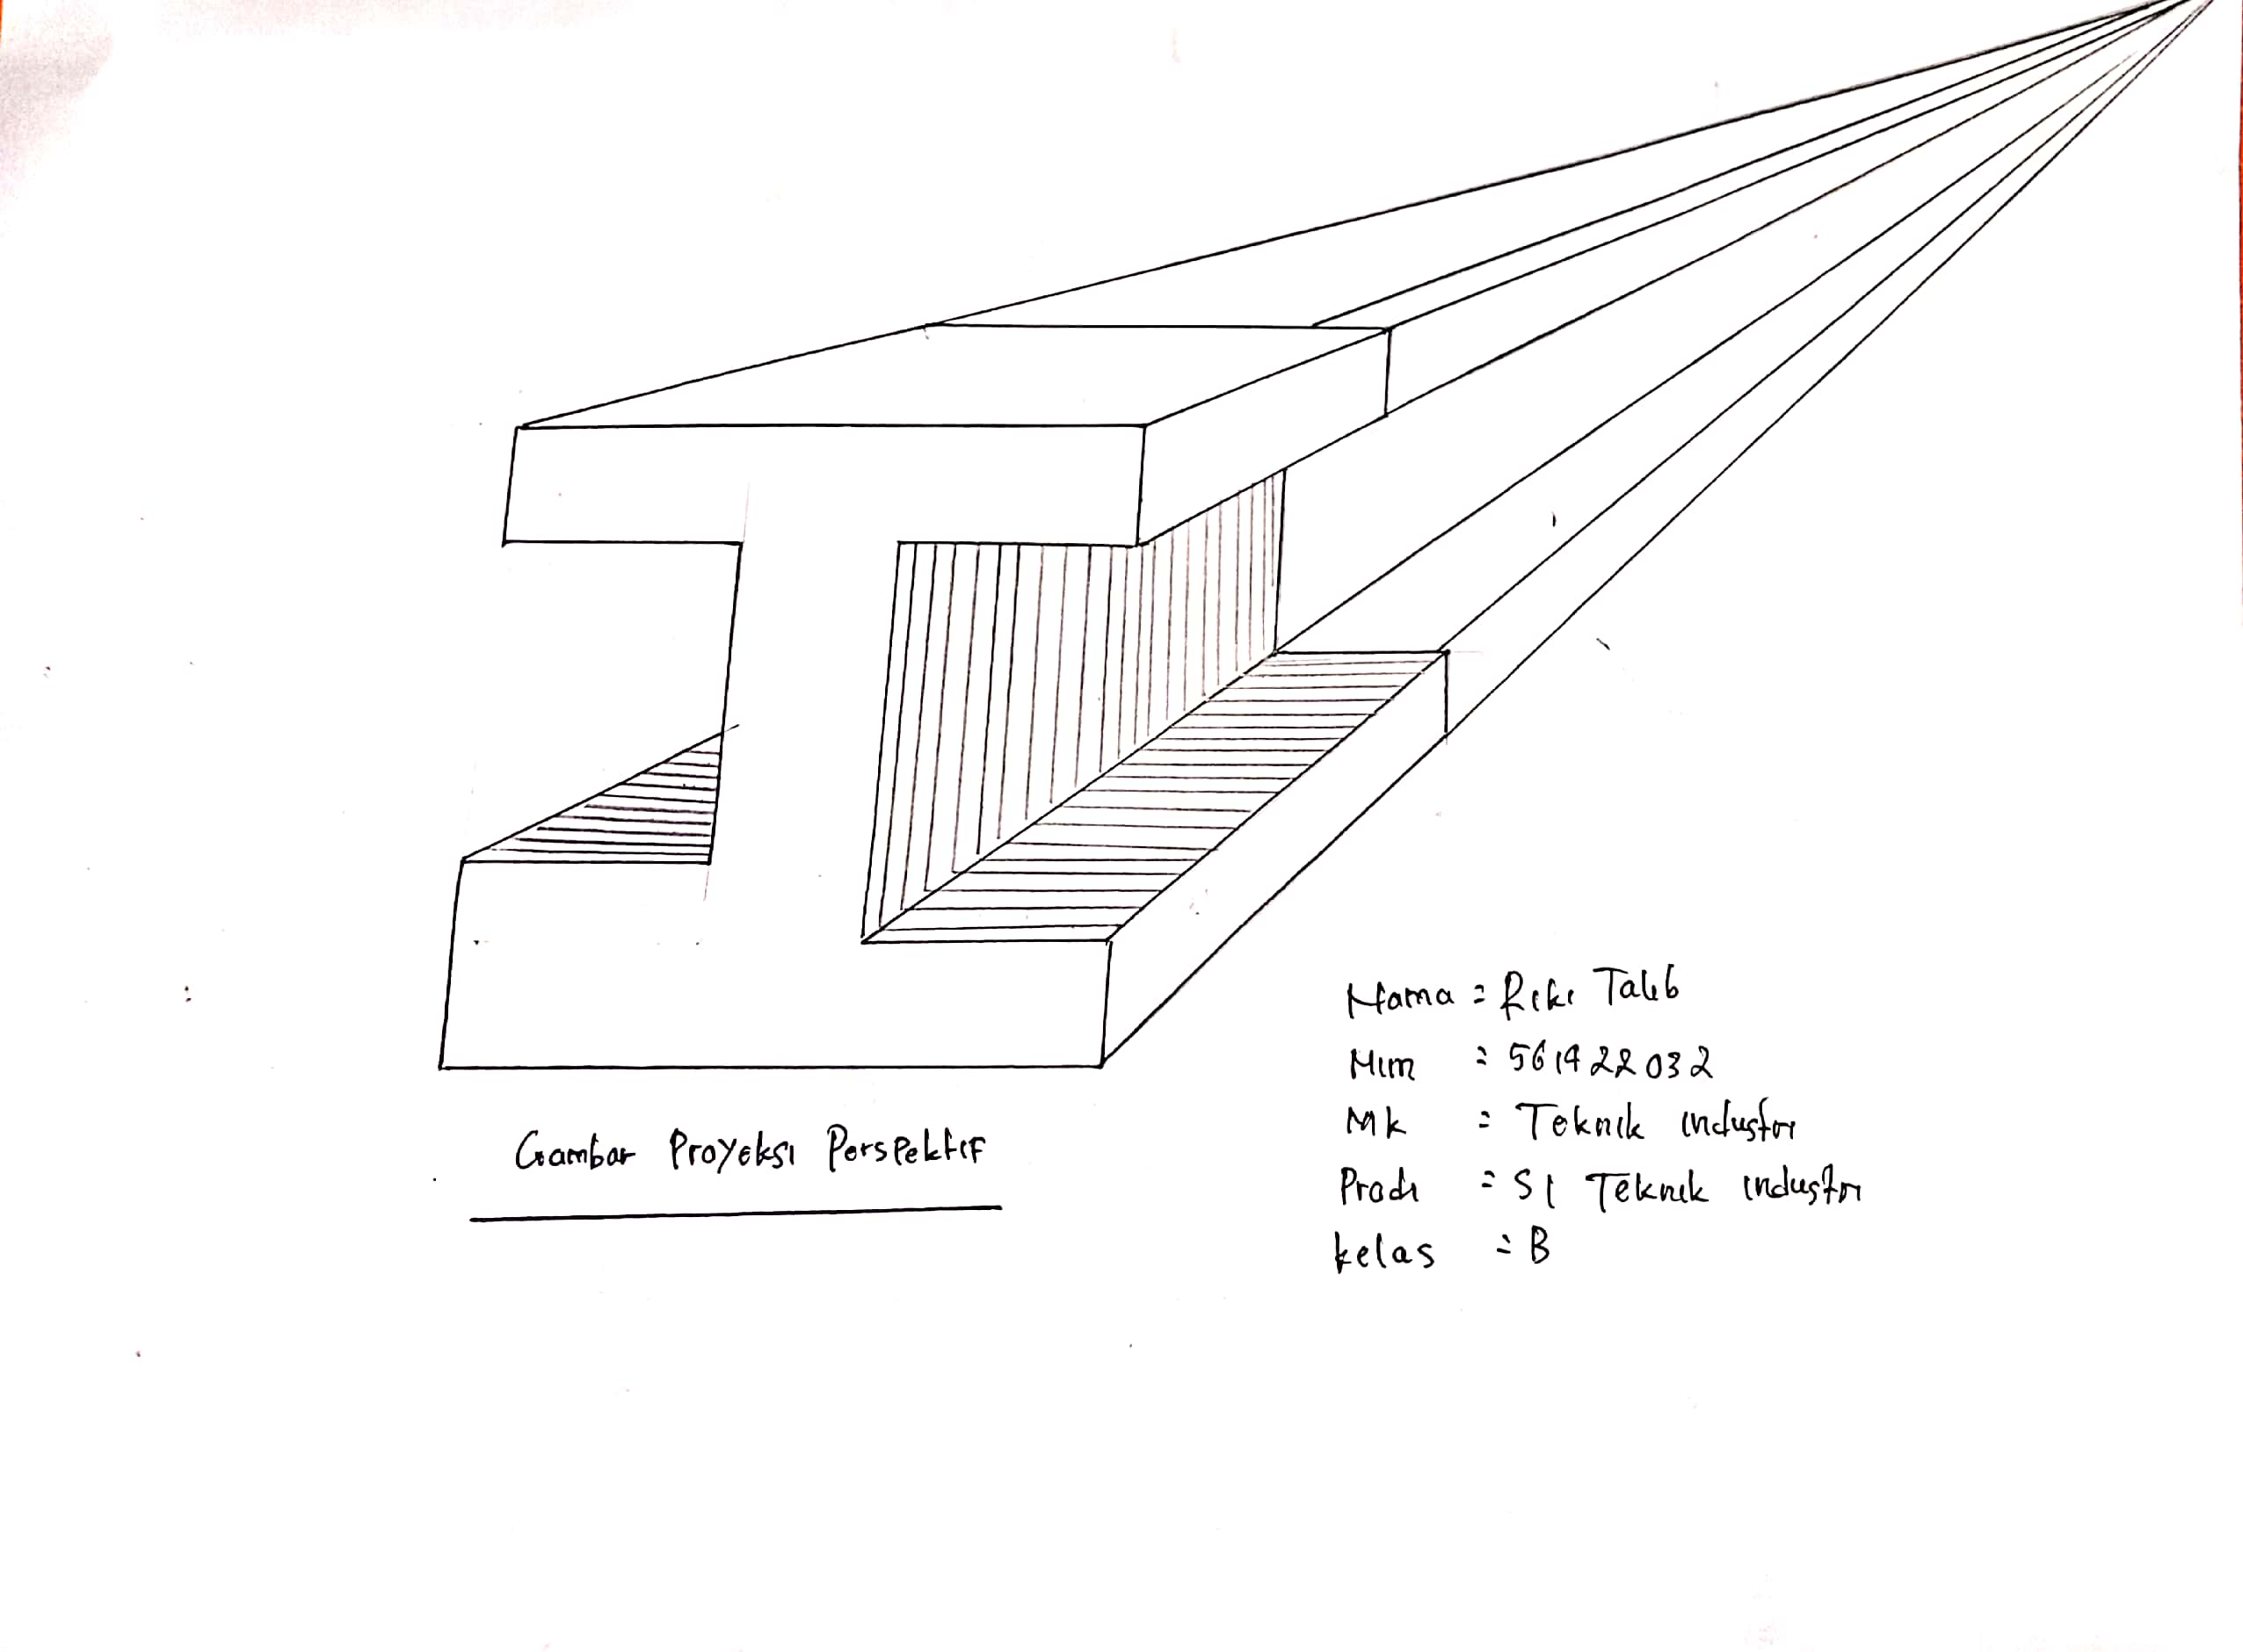 Gambar Proyeksi Perspektif
Nama = Riki Talib
Nim = 561422032
Mk = Teknik industri
Prodi = S1 Teknik industri
kelas = B